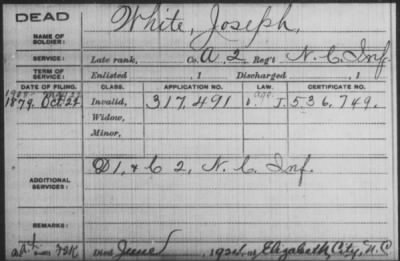 DEAD
NAME OF SOLDIER: White, Joseph,
SERVICE: Late rank, Co. A, 2 Reg't N. C. Inf.
TERM OF SERVICE: Enlisted , 1 Discharged , 1
DATE OF FILING. CLASS. APPLICATION NO. LAW. CERTIFICATE NO.
1879, Oct 24. Invalid, 317,491 J. 536,749.
Widow,
Minor,
ADDITIONAL SERVICES: D 1, & C 2, N. C. Inf.
REMARKS:
Died June 192 , at Elizabeth City, N.C